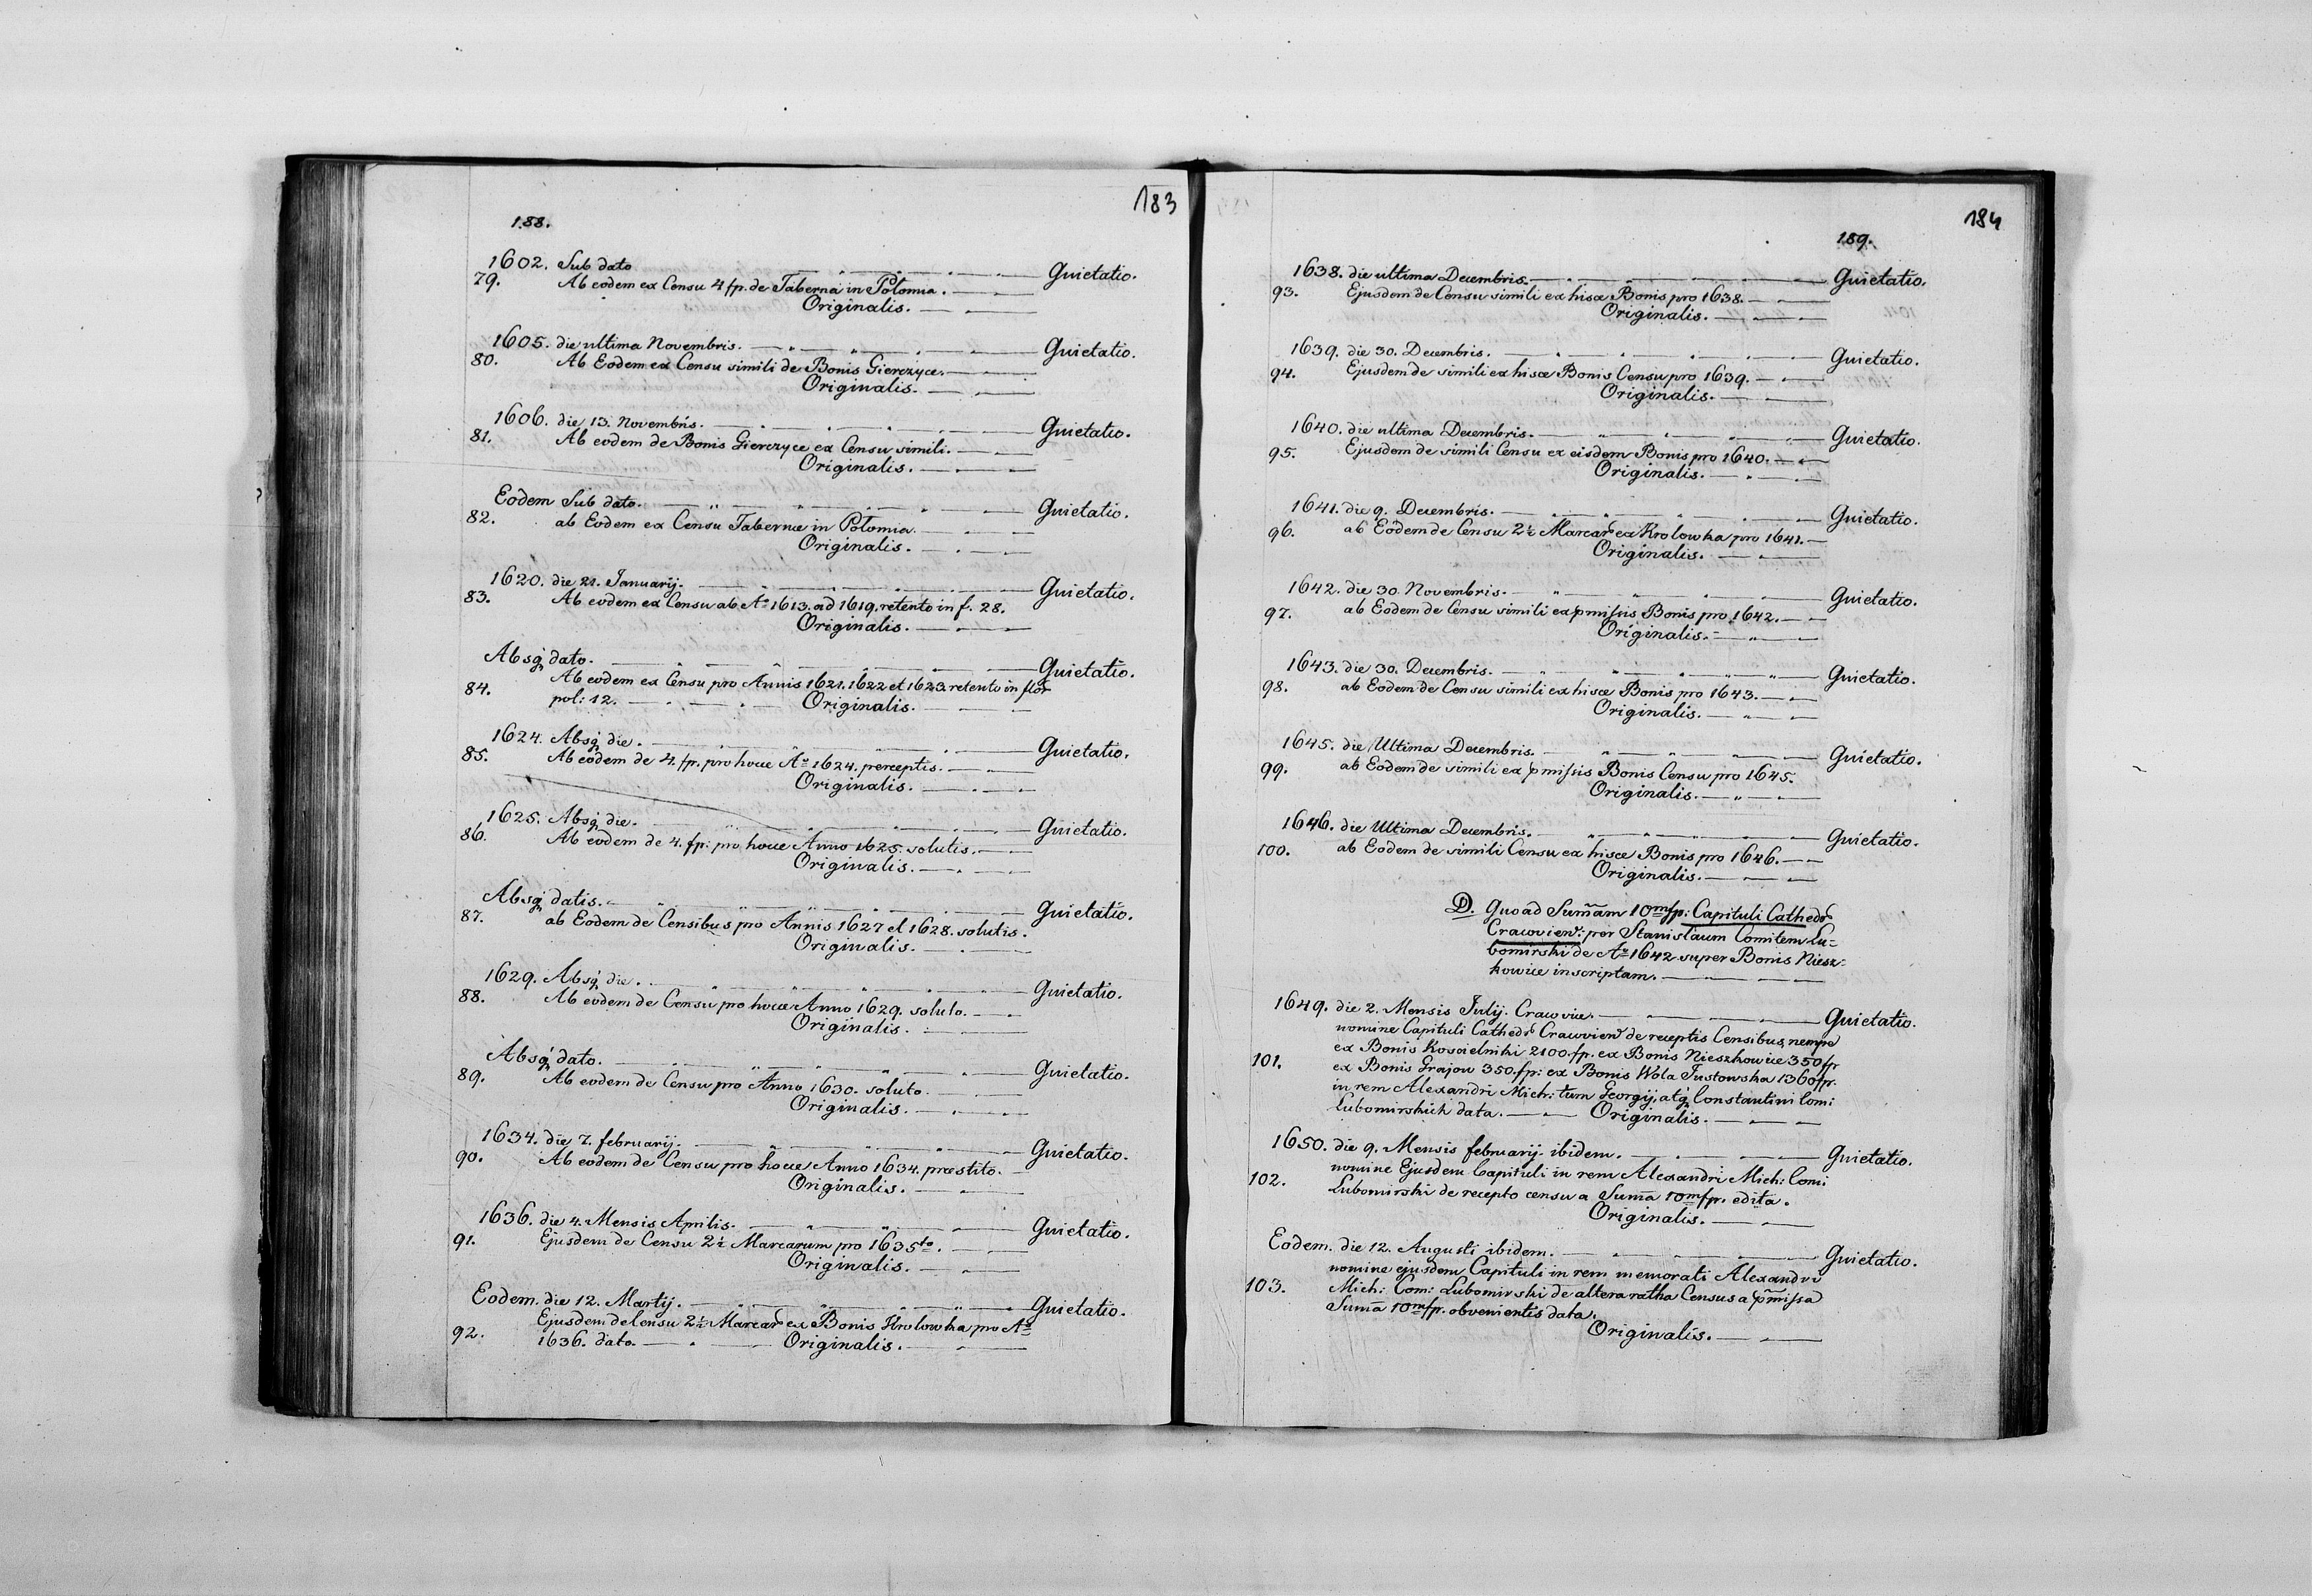 183
188.
1602. Sub dato Quietatio.
79. Ab eodem ex Censu 4 fp. de Taberna in Połomia.
Originalis.
1605. die ultima Novembris. Quietatio.
80. Ab Eodem ex Censu simili de Bonis Gierczyce.
Originalis.
1606. die 13. Novembris. Quietatio.
81. Ab eodem de Bonis Gierczyce ex Censu simili.
Originalis.
Eodem Sub dato. Quietatio.
82. ab Eodem ex Censu Tabernæ in Połomia.
Originalis.
1620. die 21. Januarij. Quietatio.
83. Ab eodem ex Censu ab Aº 1613. ad 1619. retento in f. 28.
Originalis.
Absq dato. Quietatio.
Ab eodem ex Censu pro Annis 1621. 1622 et 1623. retento in flor
84. pol: 12. Originalis.
1624. Absq die. Quietatio.
85. Ab eodem de 4. fp. pro hocce Aº 1624. perceptis.
Originalis.
1625. Absq die. Quietatio.
86. Ab eodem de 4. fp: pro hocce Anno 1625. solutis.
Originalis.
Absq datis. Quietatio.
87. ab Eodem de Censibus pro Annis 1627 et 1628. solutis.
Originalis.
1629. Absq die. Quietatio.
88. Ab eodem de Censu pro hocce Anno 1629. soluto.
Originalis.
Absq dato. Quietatio.
89. Ab eodem de Censu pro Anno 1630. soluto.
Originalis.
1634. die 7. februarij. Quietatio.
90. Ab eodem de Censu pro hocce Anno 1634. præstito.
Originalis.
1636. die 4. Mensis Aprilis. Quietatio.
91. Ejusdem de Censu 2½ Marcarum pro 1635to.
Originalis.
Eodem. die 12. Martij. Quietatio.
Ejusdem de Censu 2½ Marcar ex Bonis Krolowka pro Aº
92. 1636. dato. Originalis.
184
189.
1638. die ultima Decembris. Quietatio.
93. Ejusdem de Censu simili ex hisce Bonis pro 1638.
Originalis.
1639. die 30. Decembris. Quietatio.
94. Ejusdem de simili ex hisce Bonis Censu pro 1639.
Originalis.
1640. die ultima Decembris. Quietatio.
95. Ejusdem de simili Censu ex eisdem Bonis pro 1640.
Originalis.
1641. die 9. Decembris. Quietatio.
96. ab Eodem de Censu 2½ Marcar ex Krolowka pro 1641.
Originalis.
1642. die 30. Novembris. Quietatio.
97. ab Eodem de Censu simili ex pmissis Bonis pro 1642.
Originalis.
1643. die 30. Decembris. Quietatio.
98. ab Eodem de Censu simili ex hisce Bonis pro 1643.
Originalis.
1645. die Ultima Decembris. Quietatio.
99. ab Eodem de simili ex pmissis Bonis Censu pro 1645.
Originalis.
1646. die Ultima Decembris. Quietatio.
100. ab Eodem de simili Censu ex hisce Bonis pro 1646.
Originalis.
D. Quoad Sum̃am 10m fp: Capituli Cathedr
Cracovien: per Stanislaum Comitem Lu=
bomirski de Aº 1642 super Bonis Niesz=
kowice inscriptam.
1649. die 2. Mensis Julij. Cracoviæ. Quietatio.
nomine Capituli Cathedr Cracovien de receptis Censibus, nempe
ex Bonis Koscielniki 2100. fp. ex Bonis Nieszkowice 350 fp
101. ex Bonis Grajow 350. fp: ex Bonis Wola Justowska 1360 fp.
in rem Alexandri Mich: tum Georgij, atq Constantini Com:
Lubomirskich data. Originalis.
1650. die 9. Mensis februarij. ibidem. Quietatio.
nomine Ejusdem Capituli in rem Alexandri Mich: Com:
102. Lubomirski de recepto censu a Sum̃a 10m fp. edita.
Originalis.
Eodem. die 12. Augusti ibidem. Quietatio.
nomine ejusdem Capituli in rem memorati Alexandri
103. Mich: Com: Lubomirski de altera ratha Census a pmissa
Sum̃a 10m fp. obvenientis data.
Originalis.